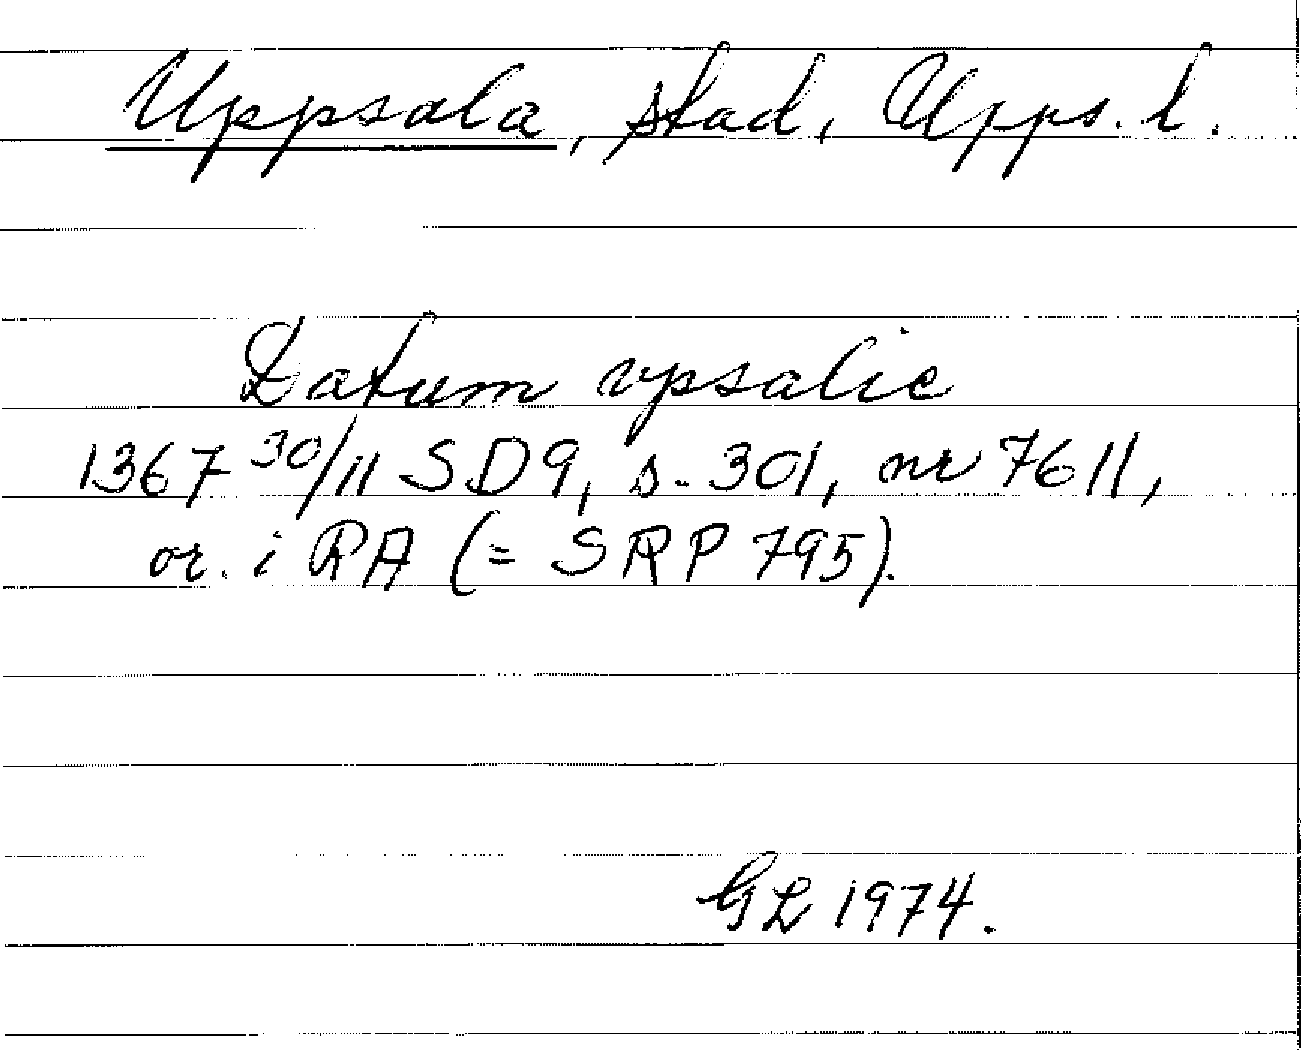 Uppsala, stad, Upps. l.
Datum vpsalie
1367 30/11 SD9, s. 301, nr 7611,
or. i RA (= SRP 795).
GL 1974.